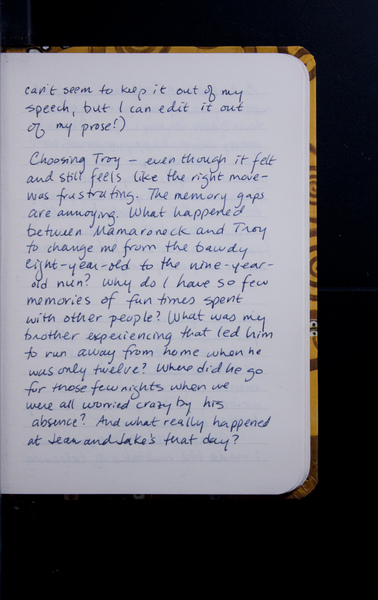 can't seem to keep it out of my
speech, but I can edit it out
of my prose!)
Choosing Troy – even though it felt
and still feels like the right move–
was frustrating. The memory gaps
are annoying. What happened
between Mamaroneck and Troy
to change me from the bawdy
eight-year-old to the nine-year-
old nun? Why do I have so few
memories of fun times spent
with other people? What was my
brother experiencing that led him
to run away from home when he
was only twelve? Where did he go
for those few nights when we
were all worried crazy by his
absence? And what really happened
at Jean and Jake's that day?